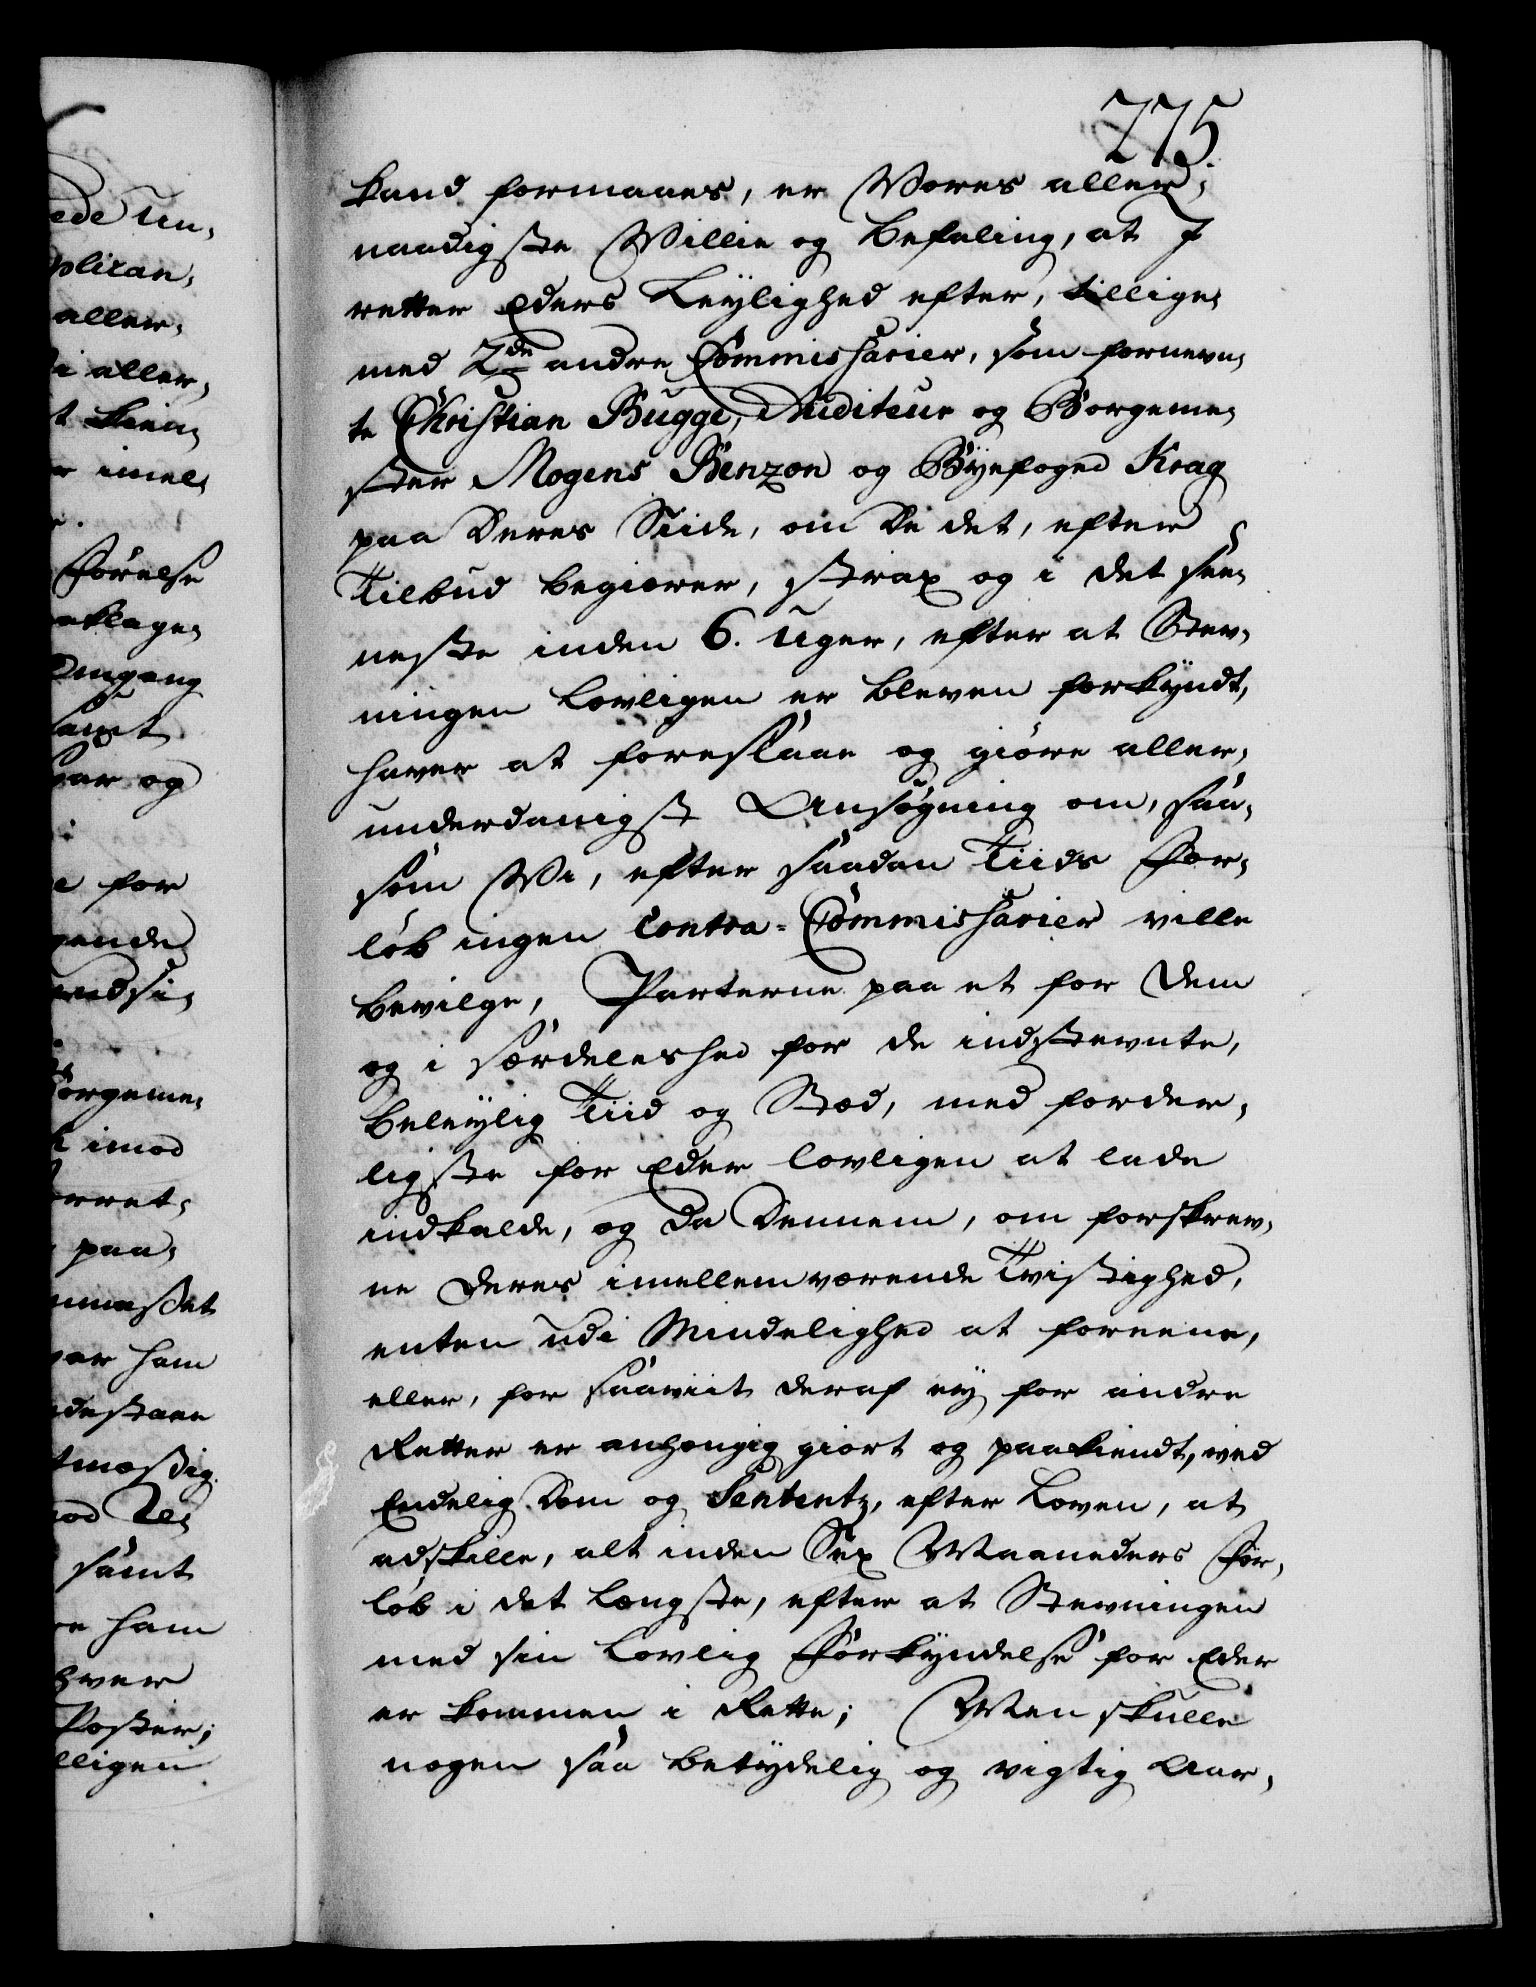 275.
kand formaaes, er Vores aller,
naadigste Villie og Befaling, at I
retter Eders Leylighed efter, tillige,
med 2de andre Commissarier, som fornevn,
te Christian Bugge, Auditeur og Borgeme,
ster Mogens Benzon og Byefoged Krag
paa Deres Siide, om De det, efter
Tilbud begierer, strax og i det see,
neste inden 6. Uger, efter at Stev,
ningen lovligen er bleven forkyndt,
haver at foreslaae og giøre aller,
underdanigst Ansøgning om, saa,
som Vi, efter saadan Tiids For,
løb ingen Contra-Commissarier ville
bevilge, Parterne paa et for Dem
og i særdeleshed for de indstevnte,
beleylig Tiid og Stæd, med forder,
ligste for Eder lovligen at lade
indkalde, og da Dennem, om forskrev,
ne Deres imellemværende Tvistighed,
enten udi Mindelighed at foreene,
eller, for saaviit deraf ey for andre
Retter er anhængig giort og paakiendt, ved
Endelig Dom og Sententz, efter Loven, at
adskille, alt inden Sex Maaneders For,
løb i det længste, efter at Stevningen
med sin lovlig Forkyndelse for Eder
er kommen i Rette; Men skulle
nogen saa betydelig og vigtig Aar,
ede Un,
plican,
aller,
i aller,
t kien,
r imel,
Førelse
eklage,
Omgang
samt
var og
e for
gende
redsi,
orgeme,
t imod
rret,
paa,
ham
destaae
tmæssig
samt
re ham
hver
Poster;
lligen